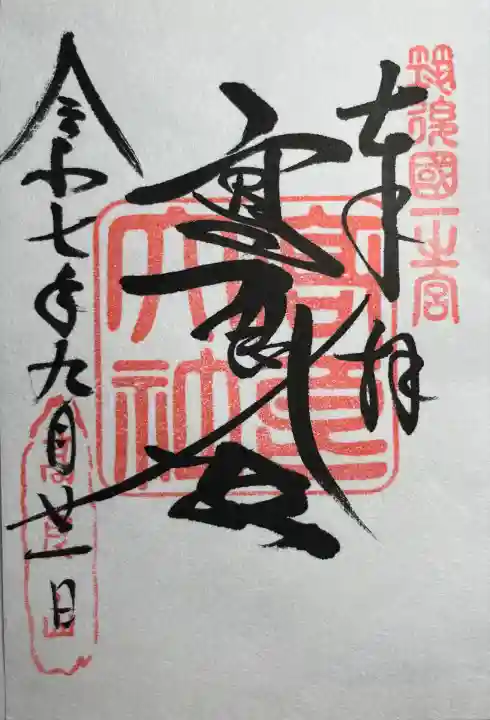 筑後國一之宮
奉拝
高良大社
高良大神
令和七年九月廿一日